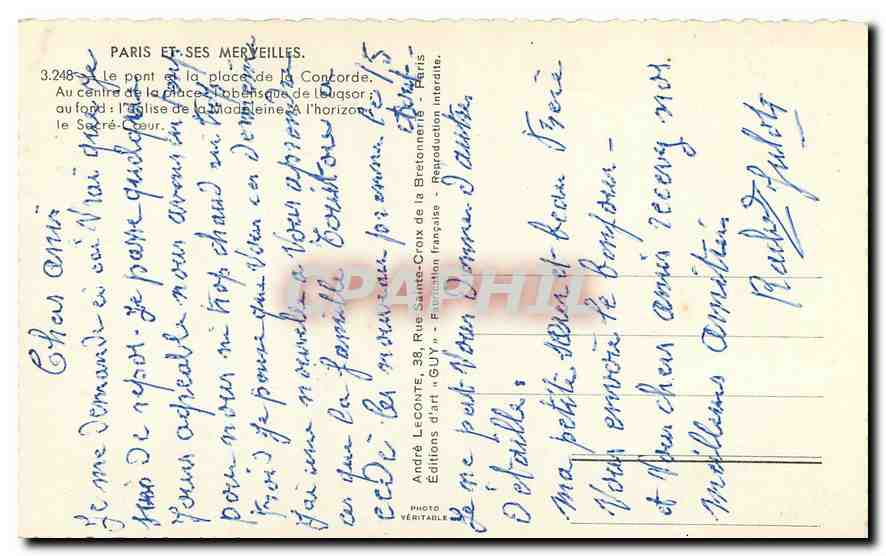 PARIS ET SES MERVEILLES.
3.248 - Le pont et la place de la Concorde.
Au centre de la place : l'obélisque de Louqsor ;
au fond : l'église de la Madeleine. A l'horizon :
le Sacré-Cœur.
Chers amis
Je me demande si cai vrai que je
suis de repos - Je passe quelques
Jours agréable nous avons un
pour nous ni trop chaud ni trop
froid Je pense que vous
J'ai une nouvelle a vous
ces que la famille
cedé les nouveau prenne le 15
Je ne peut vous donner d'autres
Détailles.
ma petite sœur et beau Frère
Vous envoie le bonjour -
et Vous chers amis recevez nos
meilleurs amitiés
André LECONTE, 38, Rue Sainte-Croix de la Bretonnerie - Paris
Éditions d'art « GUY » - Fabrication française - Reproduction interdite.
PHOTO
VÉRITABLE
CPAPHIL